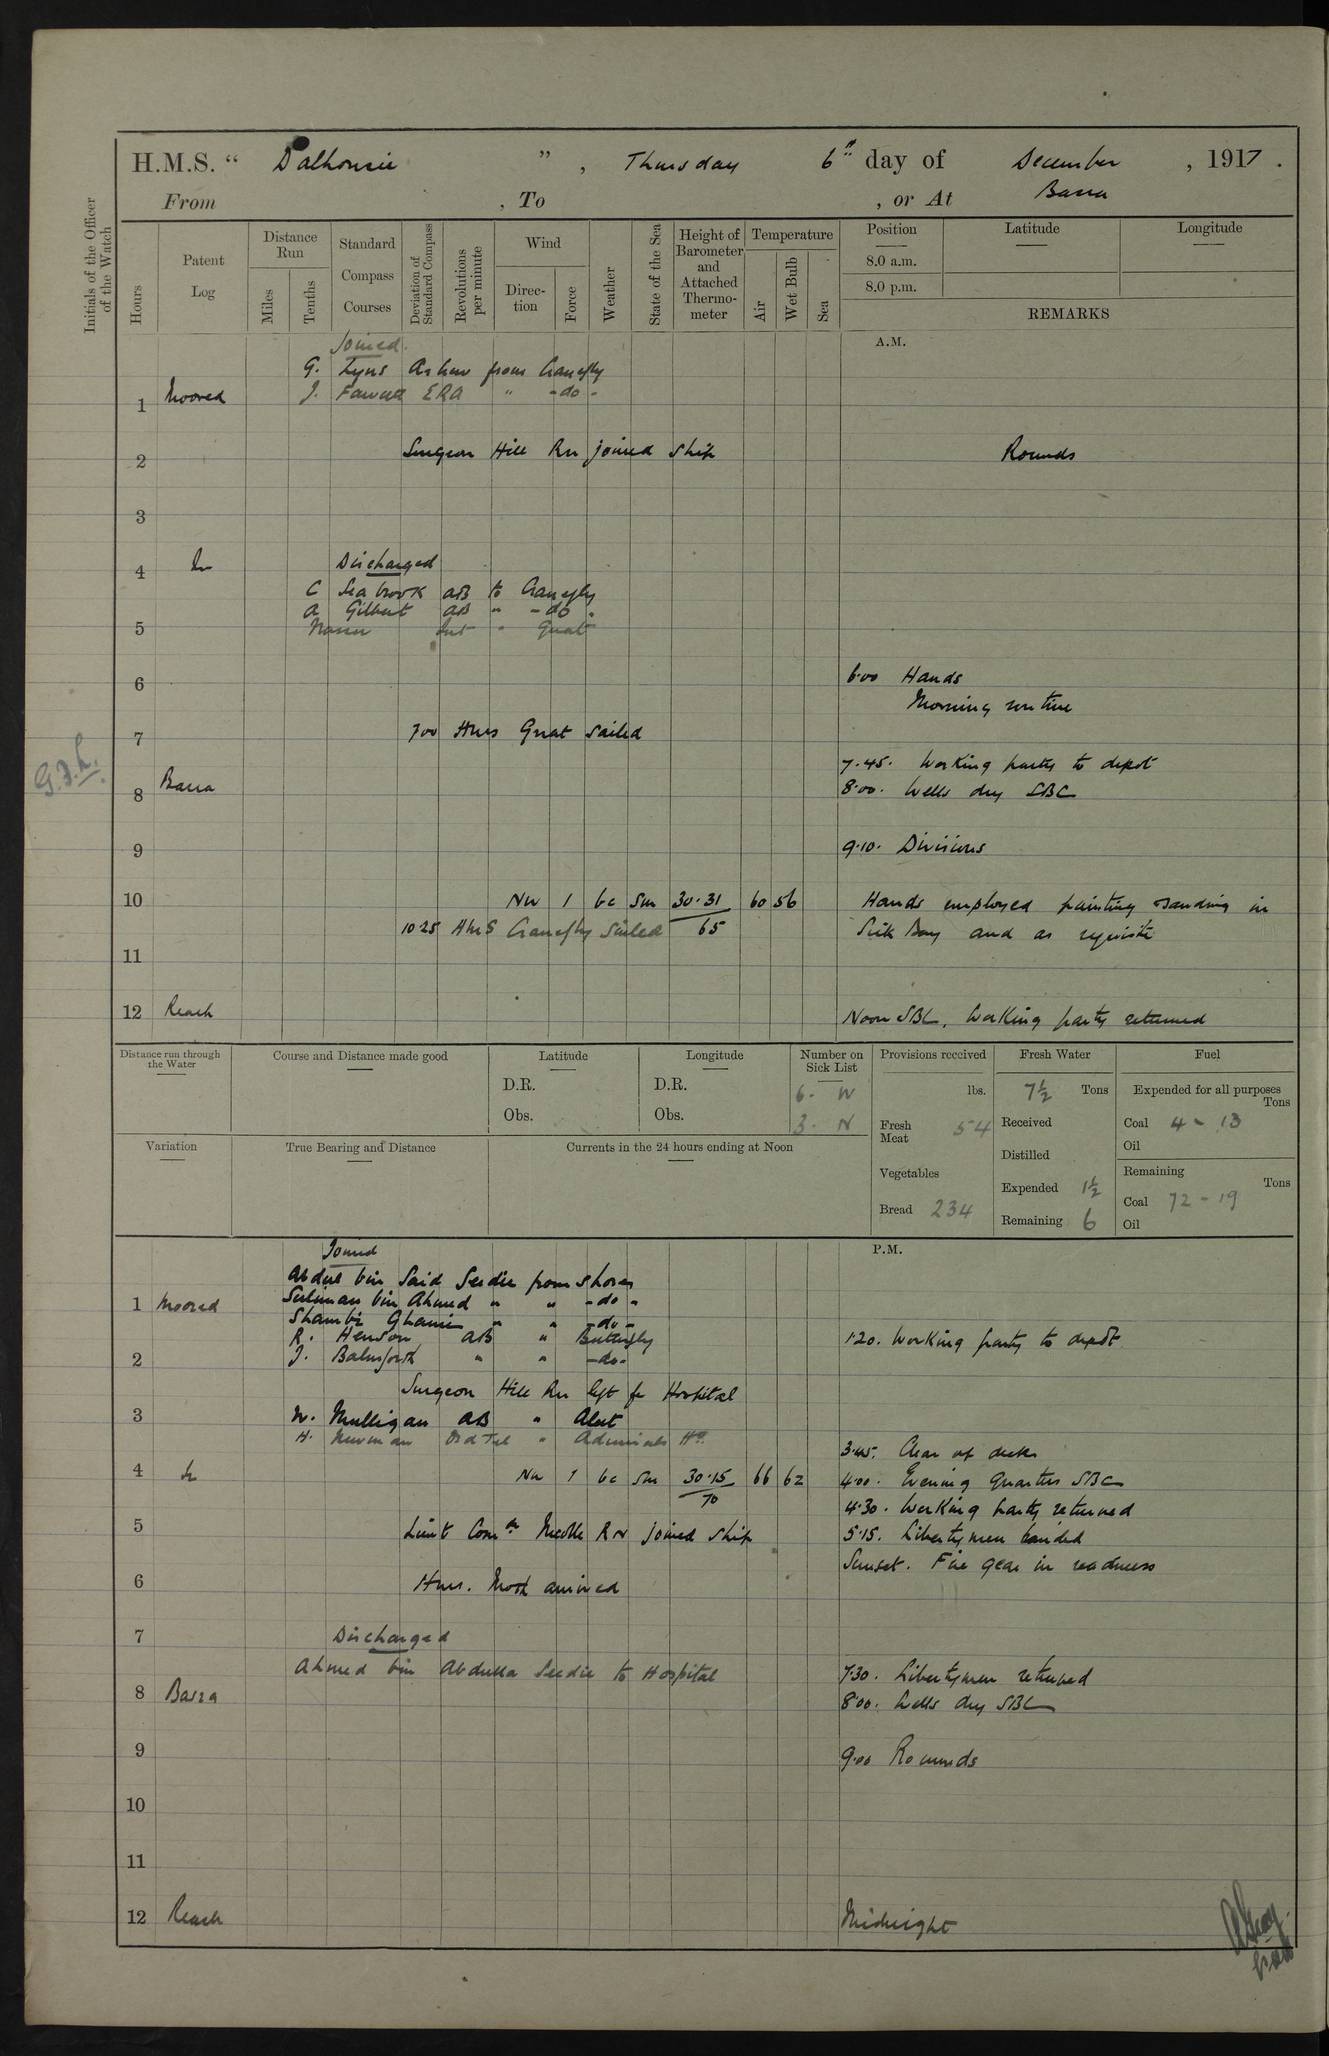 H.M.S. “ Dalhousie ” , Thursday 6th day of December , 1917 .
From , To , or At Basra
Initials of the Officer of the Watch
Hours
Patent Log
Distance Run
Miles
Tenths
Standard Compass Courses
Deviation of Standard Compass
Revolutions per minute
Wind
Direction
Force
Weather
State of the Sea
Height of Barometer and Attached Thermometer
Temperature
Air
Wet Bulb
Sea
Position
8.0 a.m.
8.0 p.m.
Latitude
Longitude
REMARKS
A.M.
Joined.
G. Lyns from Cranefly
1 Moored J. Fawcett ERA " -do-
2 Surgeon Hill RN joined ship Rounds
3
4 In Discharged
C Seabrook AB to Cranefly
A Gilbert AB " -do-
5 " Gnat
6 6.00 Hands
Morning routine
7 7.00 HMS Gnat sailed
7.45. Working party to depot
G.F.H.
8 Basra 8.00. Wells dry SBC
9 9.10. Divisions
10 NW 1 bc sm 30.31 60 56 Hands employed painting & sanding in
10.25 HMS Cranefly sailed 65 Sick Bay and as requisite
11
12 Reach Noon SBC. Working party returned
Distance run through the Water
Course and Distance made good
Latitude
D.R.
Obs.
Longitude
D.R.
Obs.
Number on Sick List
6. W
3. N
Provisions received
lbs.
Fresh Meat 54
Vegetables
Bread 234
Fresh Water
7½ Tons
Received
Distilled
Expended 1½
Remaining 6
Fuel
Expended for all purposes
Tons
Coal 4 - 13
Oil
Remaining
Tons
Coal 72 - 19
Oil
Variation
True Bearing and Distance
Currents in the 24 hours ending at Noon
P.M.
Joined
Abdul bin Said Seedie from shore
1 Moored Suliman bin Ahmed " " -do-
Shambi Ghamis " " -do-
R. Henson AB " Butterfly 1.20. Working party to depot
2 J. Balmforth " " -do-
Surgeon Hill RN left for Hospital
3 W. Mulligan AB " Alert
H. Newman Ord Tel " Admirals
3.45. Clear up decks
4 In NW 1 bc sm 30.15 66 62 4.00. Evening Quarters SBC
70
4.30. Working party returned
5 Lieut Comdr RN joined ship 5.15. Libertymen landed
Sunset. Fire gear in readiness
6 HMS. Moth arrived
7 Discharged
Ahmed bin Abdulla Seedie to Hospital 7.30. Libertymen returned
8 Basra 8.00. Wells dry SBC
9 9.00 Rounds
10
11
12 Reach Midnight